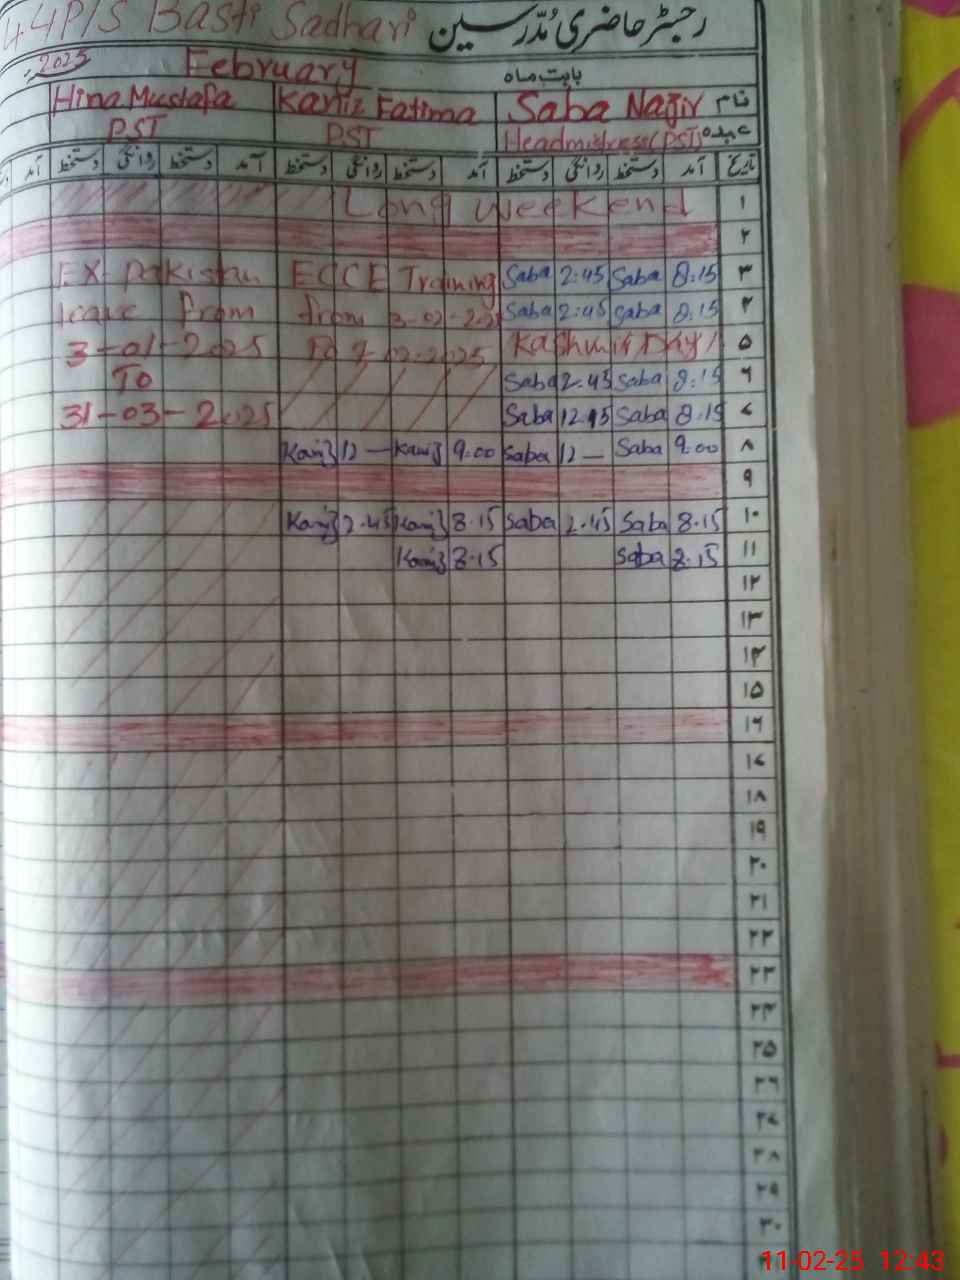 44P/S Basti Sadhari رجسٹر حاضری مُدّرسین
2025 February بابت ماہ
Hina Mustafa Kaniz Fatima Saba Nazir نام
PST PST Headmistress (PST) عہدہ
آمد دستخط روانگی دستخط آمد دستخط روانگی دستخط آمد دستخط روانگی دستخط آمد تاریخ
Long Weekend ۱
۲
EX-Pakistan ECCE Training Saba 2:45 Saba 8:15 ۳
leave From from 3-02-2025 Saba 2:45 Saba 8:15 ۴
3-01-2025 To 7-02-2025 Kashmir Day ۵
To Saba 2.45 Saba 8:15 ۶
31-03-2025 Saba 12.15 Saba 8.15 ۷
Kaniz 12 — Kaniz 9:00 Saba 12 — Saba 9:00 ۸
۹
Kaniz 2.45 Kaniz 8.15 Saba 2.45 Saba 8.15 ۱۰
Kaniz 8.15 Saba 8.15 ۱۱
۱۲
۱۳
۱۴
۱۵
۱۶
۱۷
۱۸
۱۹
۲۰
۲۱
۲۲
۲۳
۲۴
۲۵
۲۶
۲۷
۲۸
۲۹
۳۰
11-02-25 12:43